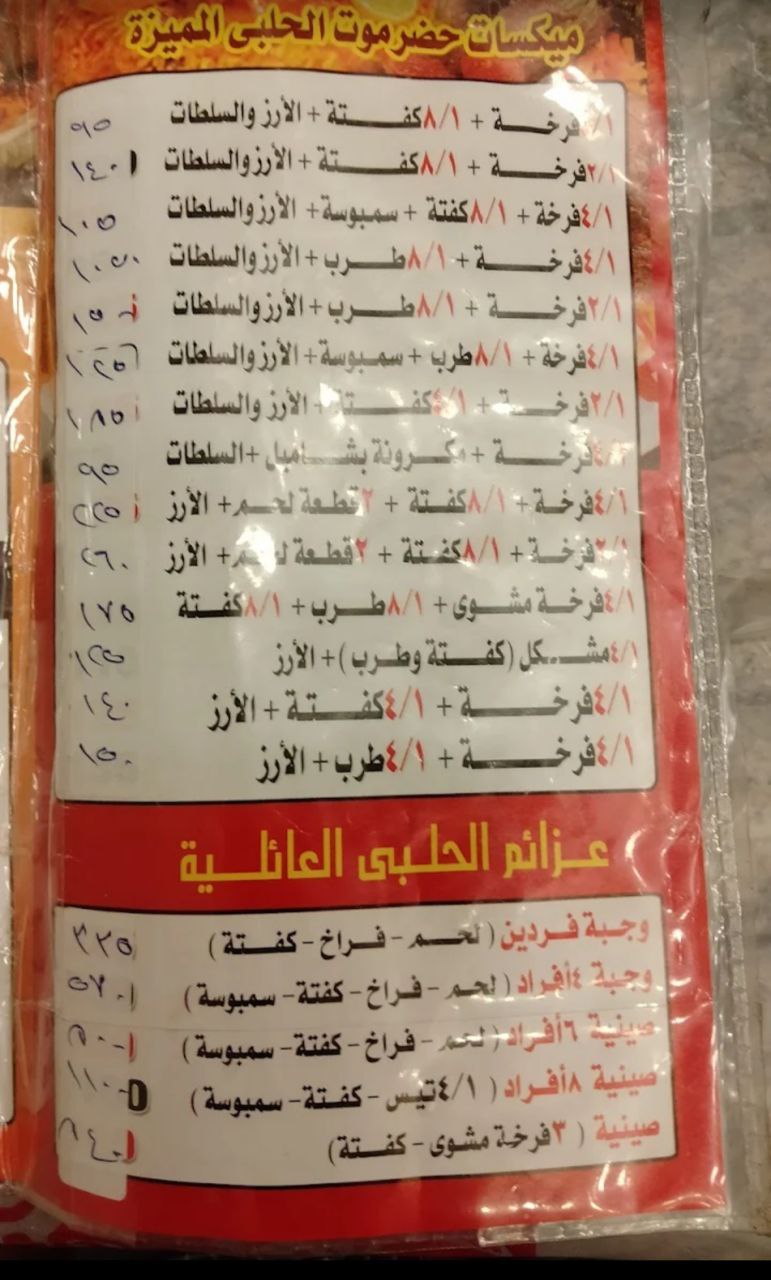 ميكسات حضرموت الحلبى المميزة
فرخة + ٨/١ كفتة + الأرز والسلطات ٩٥
٢/١ فرخة + ٨/١ كفتة + الأرز والسلطات ١٤٠
٤/١ فرخة + ٨/١ كفتة + سمبوسة + الأرز والسلطات ١٠٥
٤/١ فرخة + ٨/١ طرب + الأرز والسلطات
٢/١ فرخة + ٨/١ طرب + الأرز والسلطات ١٥٠
٤/١ فرخة + ٨/١ طرب + سمبوسة + الأرز والسلطات
٢/١ فرخة + ٤/١ كفتة + الأرز والسلطات ١٨٥
٤/١ فرخة + مكرونة بشاميل + السلطات ٩٥
٤/١ فرخة + ٨/١ كفتة + ٢ قطعة لحم + الأرز
٢/١ فرخة + ٨/١ كفتة + ٢ قطعة لحم + الأرز ٢٦٠
٤/١ فرخة مشوى + ٨/١ طرب + ٨/١ كفتة ١٧٥
٤/١ مشكل (كفتة وطرب) + الأرز
٤/١ فرخة + ٤/١ كفتة + الأرز ١٤٠
٤/١ فرخة + ٤/١ طرب + الأرز ١٥٠
عزائم الحلبى العائلية
وجبة فردين (لحم - فراخ - كفتة) ٣٢٥
وجبة ٤ أفراد (لحم - فراخ - كفتة - سمبوسة) ٥٧٠
صينية ٦ أفراد (لحم - فراخ - كفتة - سمبوسة)
صينية ٨ أفراد (٤/١ تيس - كفتة - سمبوسة) ١١٠٠
صينية (٣ فرخة مشوى - كفتة)